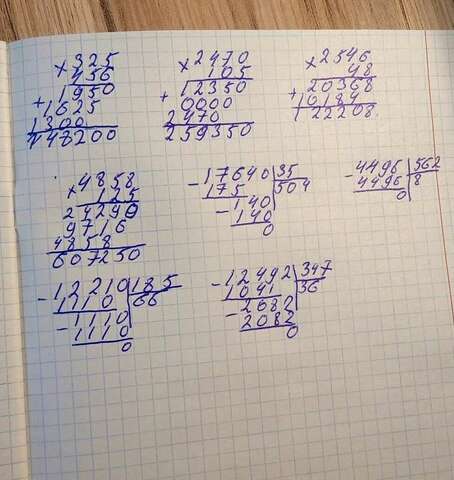 × 325
456
1950
+ 1625
1300
148200
× 2470
105
12350
+ 0000
2470
259350
× 2546
48
20368
+ 10184
122208
× 4858
125
24290
9716
4858
607250
- 17640 | 35
175 | 504
- 140
140
0
- 4496 | 562
4496 | 8
0
- 12210 | 185
1110 | 66
- 1110
1110
0
- 12492 | 347
1041 | 36
- 2082
2082
0